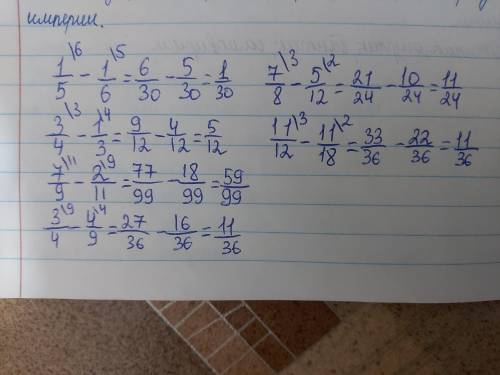 империи.
1/5\6 - 1/6\5 = 6/30 - 5/30 = 1/30
3/4\3 - 1/3\4 = 9/12 - 4/12 = 5/12
7/9\11 - 2/11\9 = 77/99 - 18/99 = 59/99
3/4\9 - 4/9\4 = 27/36 - 16/36 = 11/36
7/8\3 - 5/12\2 = 21/24 - 10/24 = 11/24
11/12\3 - 11/18\2 = 33/36 - 22/36 = 11/36